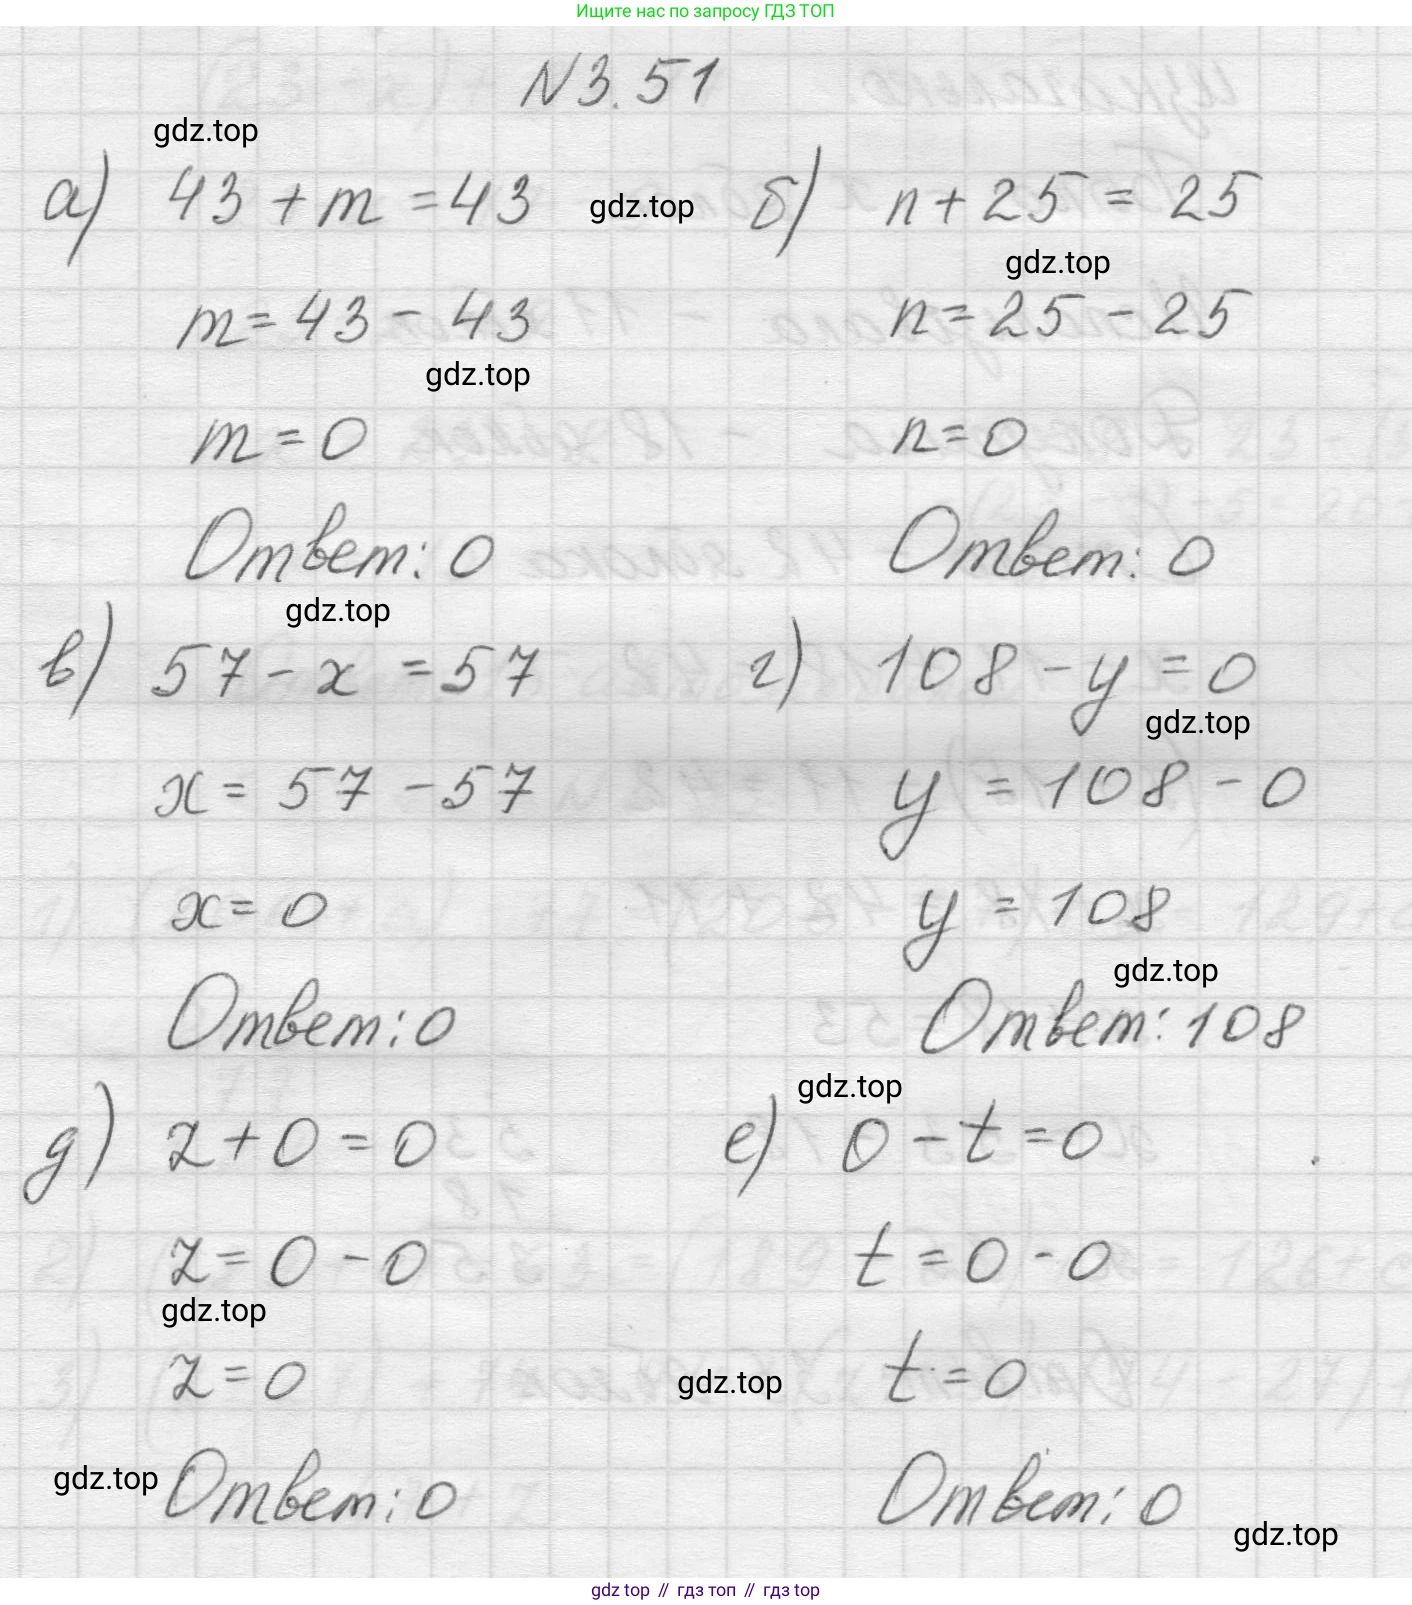 Ищите нас по запросу ГДЗ ТОП
N 3.51
gdz.top
а) 43 + m = 43
gdz.top
m = 43 - 43
gdz.top
m = 0
Ответ: 0
б) n + 25 = 25
gdz.top
n = 25 - 25
n = 0
Ответ: 0
gdz.top
в) 57 - x = 57
x = 57 - 57
x = 0
Ответ: 0
г) 108 - y = 0
gdz.top
y = 108 - 0
y = 108
gdz.top
Ответ: 108
gdz.top
д) z + 0 = 0
z = 0 - 0
gdz.top
z = 0
gdz.top
Ответ: 0
е) 0 - t = 0
t = 0 - 0
gdz.top
t = 0
Ответ: 0
gdz.top
gdz top // гдз топ // гдз top